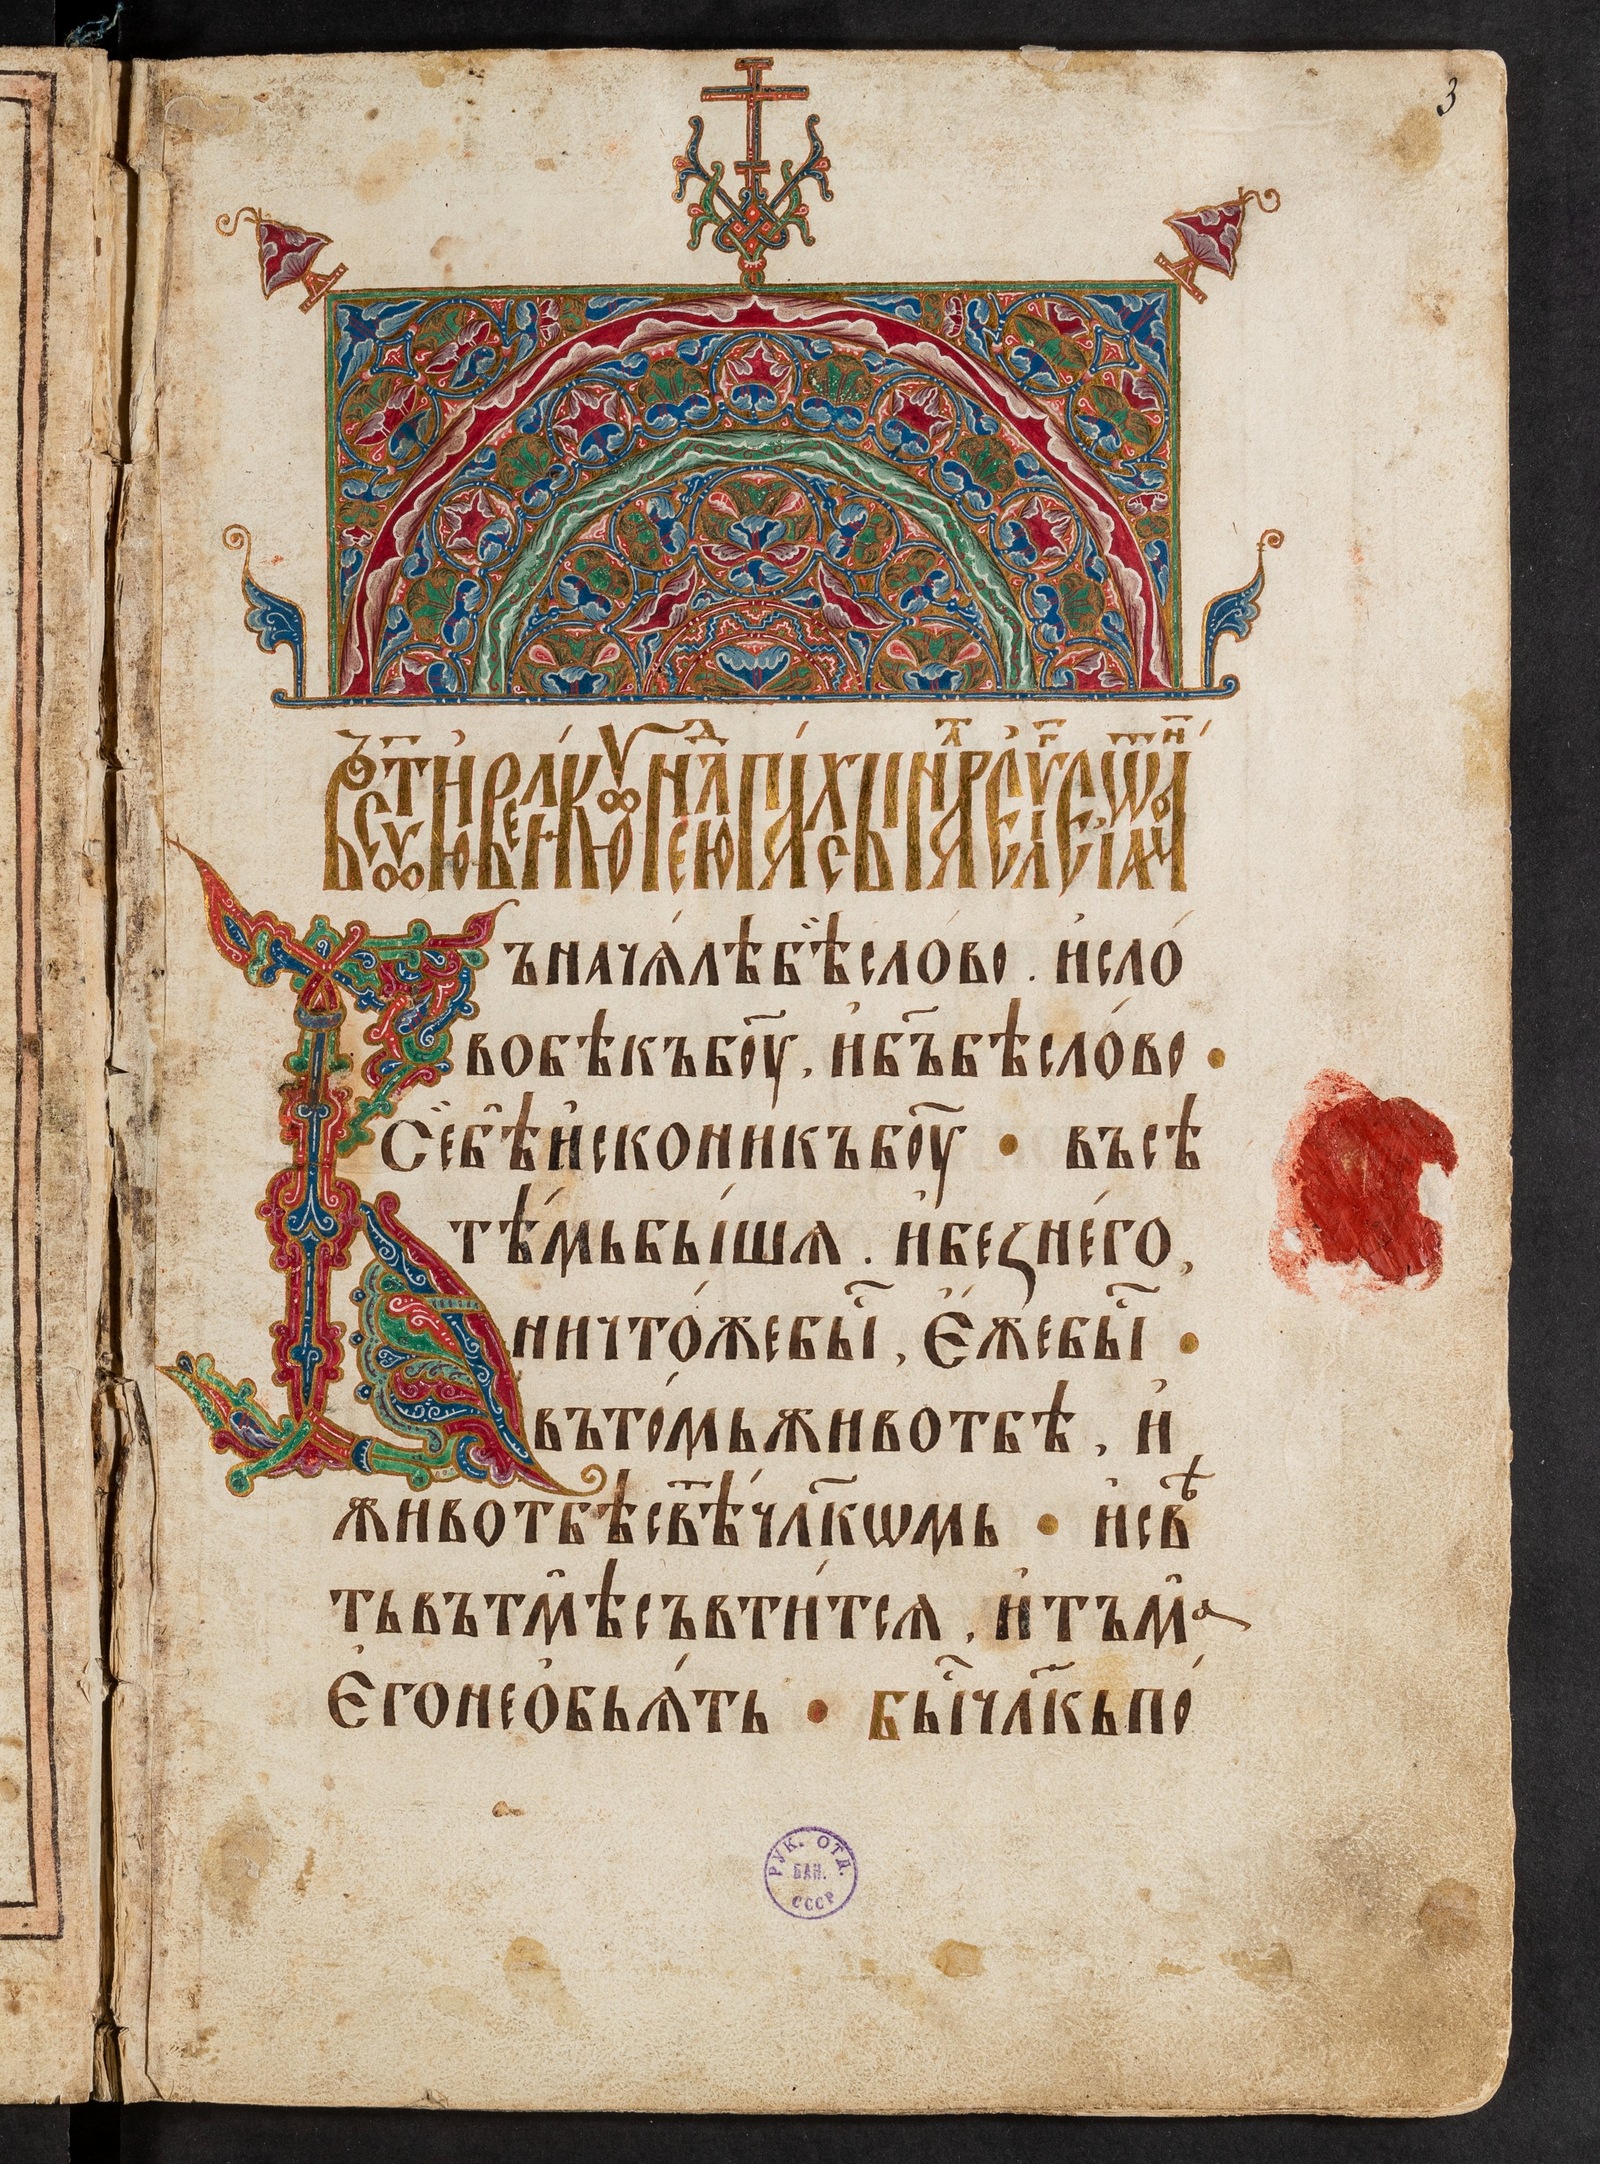 3
ъначѧ́лѣб҄ѣсло́во . и҆сло́
вобѣкъбо҃у , и҆б҃ъбѣсло́во •
Себ҄ѣи҆сконикъбо҃у • въсѣ
тѣ́мьбы́шѧ . и҆беꙁне́го ,
ничто́жебы҇ , Є҆́жебы҇ •
въто́мьживотбѣ , и҆
животбѣсв҃ѣ́чл҃кѡмь • и҆свѣ
тьвътм҄ѣсъвти́тсѧ , и҆тъма
Є҆гонео҆бьѧ́ть • бы҇чл҃кьпо́
РУК. ОТД.
БАН.
СССР